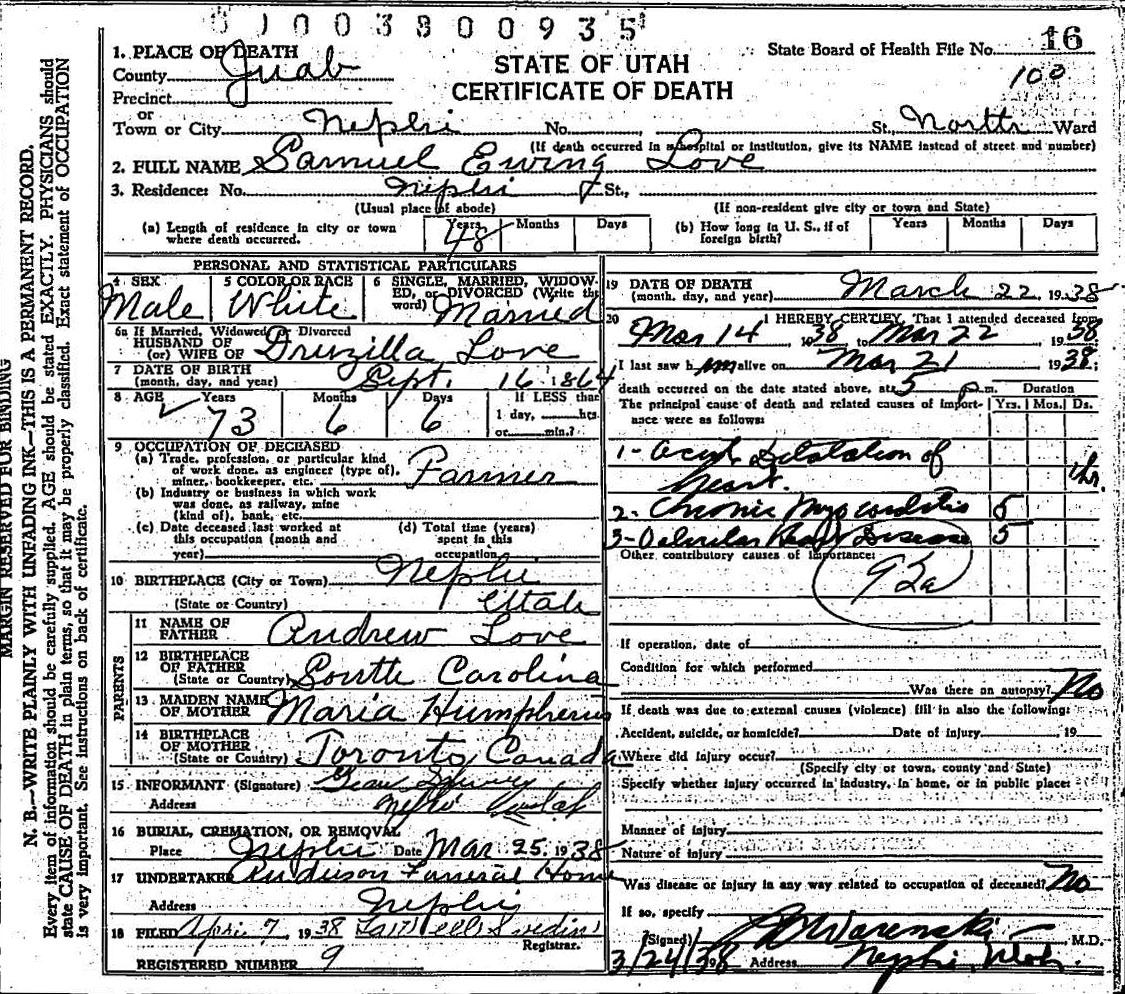 0 1 0 0 3 8 0 0 9 3 5
1. PLACE OF DEATH
County Juab
Precinct
or
Town or City Nephi No. St., North Ward
STATE OF UTAH
CERTIFICATE OF DEATH
State Board of Health File No. 16
100
(If death occurred in a hospital or institution, give its NAME instead of street and number)
2. FULL NAME Samuel Ewing Love
3. Residence: No. Nephi St.,
(Usual place of abode) (If non-resident give city or town and State)
(a) Length of residence in city or town where death occurred. Years 48 Months Days
(b) How long in U. S., if of foreign birth? Years Months Days
PERSONAL AND STATISTICAL PARTICULARS
4 SEX Male
5 COLOR OR RACE White
6 SINGLE, MARRIED, WIDOWED, or DIVORCED (Write the word) Married
6a If Married, Widowed or Divorced
HUSBAND OF
(or) WIFE OF Druzilla Love
7 DATE OF BIRTH
(month, day, and year) Sept. 16 1864
8 AGE Years 73 Months 6 Days 6 If LESS than 1 day, hrs. or min.?
9 OCCUPATION OF DECEASED
(a) Trade, profession, or particular kind of work done, as engineer (type of), miner, bookkeeper, etc. Farmer
(b) Industry or business in which work was done, as railway, mine (kind of), bank, etc.
(c) Date deceased last worked at this occupation (month and year)
(d) Total time (years) spent in this occupation
10 BIRTHPLACE (City or Town) Nephi
(State or Country) Utah
PARENTS
11 NAME OF FATHER Andrew Love
12 BIRTHPLACE OF FATHER
(State or Country) South Carolina
13 MAIDEN NAME OF MOTHER Maria Humpherus
14 BIRTHPLACE OF MOTHER
(State or Country) Toronto Canada
15 INFORMANT (Signature)
Address Nephi Utah
16 BURIAL, CREMATION, OR REMOVAL
Place Nephi Date Mar 25, 1938
17 UNDERTAKER Anderson Funeral Home
Address Nephi
18 FILED April 7, 1938
Registrar.
REGISTERED NUMBER 9
19 DATE OF DEATH
(month, day, and year) March 22, 1938
20 I HEREBY CERTIFY, That I attended deceased from
Mar 14 1938 to Mar 22, 1938
I last saw him alive on Mar 21 1938;
death occurred on the date stated above, at 5 p m. Duration
The principal cause of death and related causes of importance were as follows: Yrs. Mos. Ds.
1- Acute Dilatation of
heart. 1 hr.
2- Chronic Myocarditis 5
3- Valvular Heart Disease 5
Other contributory causes of importance:
92a
If operation, date of
Condition for which performed
Was there an autopsy? No
If death was due to external causes (violence) fill in also the following:
Accident, suicide, or homicide? Date of injury 19
Where did injury occur?
(Specify city or town, county and State)
Specify whether injury occurred in industry, in home, or in public place:
Manner of injury
Nature of injury
Was disease or injury in any way related to occupation of deceased? No
If so, specify
(Signed) M.D.
3/24/38 Address Nephi, Utah.
MARGIN RESERVED FOR BINDING
N. B.—WRITE PLAINLY WITH UNFADING INK—THIS IS A PERMANENT RECORD.
Every item of information should be carefully supplied. AGE should be stated EXACTLY. PHYSICIANS should
state CAUSE OF DEATH in plain terms, so that it may be properly classified. Exact statement of OCCUPATION
is very important. See instructions on back of certificate.